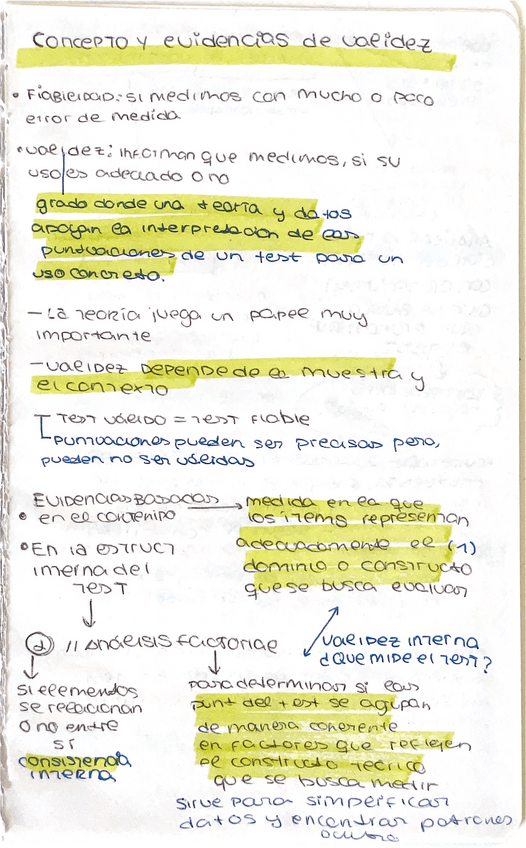 Concepto y evidencias de validez
• Fiabilidad: si medimos con mucho o poco
error de medida
• validez: informan que medimos, si su
uso es adecuado o no
grado donde una teoría y datos
apoyan la interpretación de las
puntuaciones de un test para un
uso concreto.
— La teoría juega un papel muy
importante
— validez depende de la muestra y
el contexto
Test válido = Test fiable
Puntuaciones pueden ser precisas pero,
pueden no ser válidas
Evidencias basadas
• en el contenido
medida en la que
los ítems representan
adecuadamente el (1)
dominio o constructo
que se busca evaluar
• En la estruct
interna del
Test
validez interna
¿Que mide el Test?
α // Análisis factorial
si elementos
se relacionan
o no entre
sí
consistencia
interna
para determinar si las
punt del test se agrupan
de manera coherente
en factores que reflejen
el constructo teórico
que se busca medir
sirve para simplificar
datos y encontrar patrones